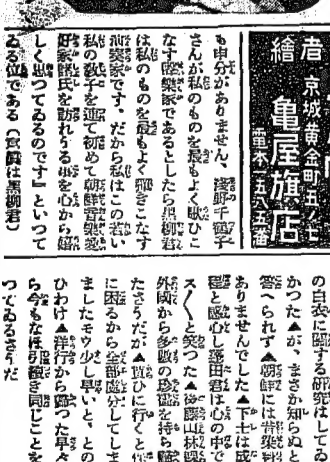 も申分がありません、淺野千鶴子
さんが私のものを最もよく歌ひこ
なす聲樂家であるとしたら黒柳君
は私のものを最もよく彈きこなす
家です、だから私はこの若い
私の教子を連て初めて朝鮮音樂愛
好家諸氏を訪れうる事を心から
しく思つてゐるのです』といつて
ゐる位である(寫眞は黒柳君)
京城黄金町五ノ七
繪 龜屋旗店
電本一五八五番
の白衣に關する研究はしてゐ
かつた▲が、まさか知らぬと
答へられず▲朝鮮には昔染料
ありませんでした▲下士は成
程と感心し蓬田君は心の中で
ス〱と笑つた▲後藤山林課
外國から多數の を持ち歸
たさうだが▲ ひに行くと
に困るから全部 分してしま
ましたモウ少し早いと、との
ひわけ▲洋行から歸つた早々
ら今もなほ引續き同じことを
つてゐるさうだ